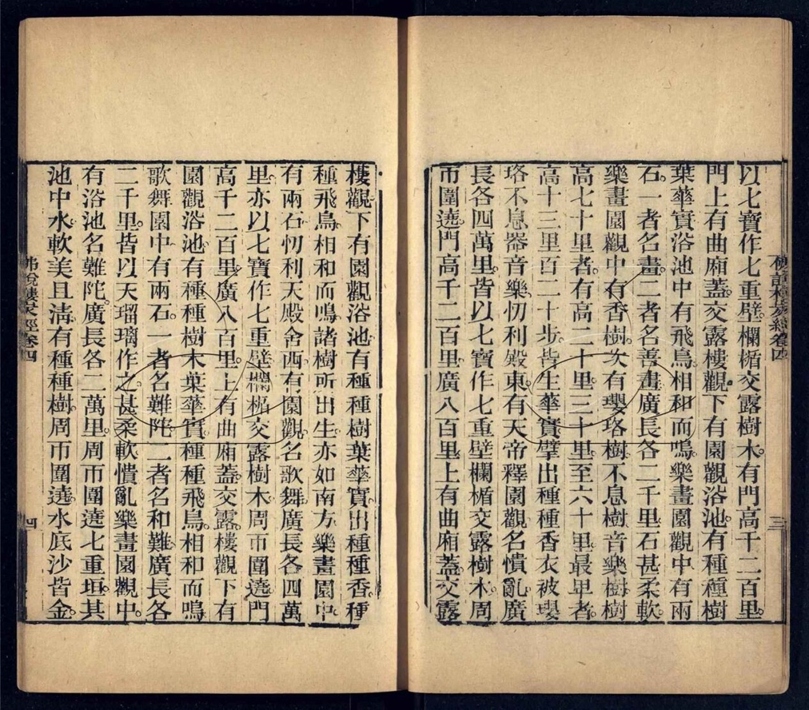 以七寶作七重壁欄楯交露樹木有門高千二百里
門上有曲廂蓋交露樓觀下有園觀浴池有種種樹
葉華實浴池中有飛鳥相和而鳴樂畫園觀中有兩
石一者名畫二者名善畫廣長各二千里石甚柔軟
樂畫園觀中有香樹次有瓔珞樹不息樹音樂樹樹
高七十里者有高二十里三十里至六十里最卑者
高十三里百二十步皆生華實擘出種種香衣被瓔
珞不息器音樂忉利殿東有天帝釋園觀名憒亂廣
長各四萬里皆以七寶作七重壁欄楯交露樹木周
帀圍遶門高千二百里廣八百里上有曲廂蓋交露
佛說樓炭經卷四
三
樓觀下有園觀浴池有種種樹葉華實出種種香種
種飛鳥相和而鳴諸樹所出生亦如南方樂畫園中
有兩石忉利天殿舍西有園觀名歌舞廣長各四萬
里亦以七寶作七重壁欄楯交露樹木周帀圍遶門
高千二百里廣八百里上有曲廂蓋交露樓觀下有
園觀浴池有種種樹木葉華實種種飛鳥相和而鳴
歌舞園中有兩石一者名難陀二者名和難廣長各
二千里皆以天瑠璃作之甚柔軟憒亂樂畫園觀中
有浴池名難陀廣長各二萬里周帀圍遶七重垣其
池中水軟美且清有種種樹周帀圍遶水底沙皆金
佛說樓炭經卷四
四